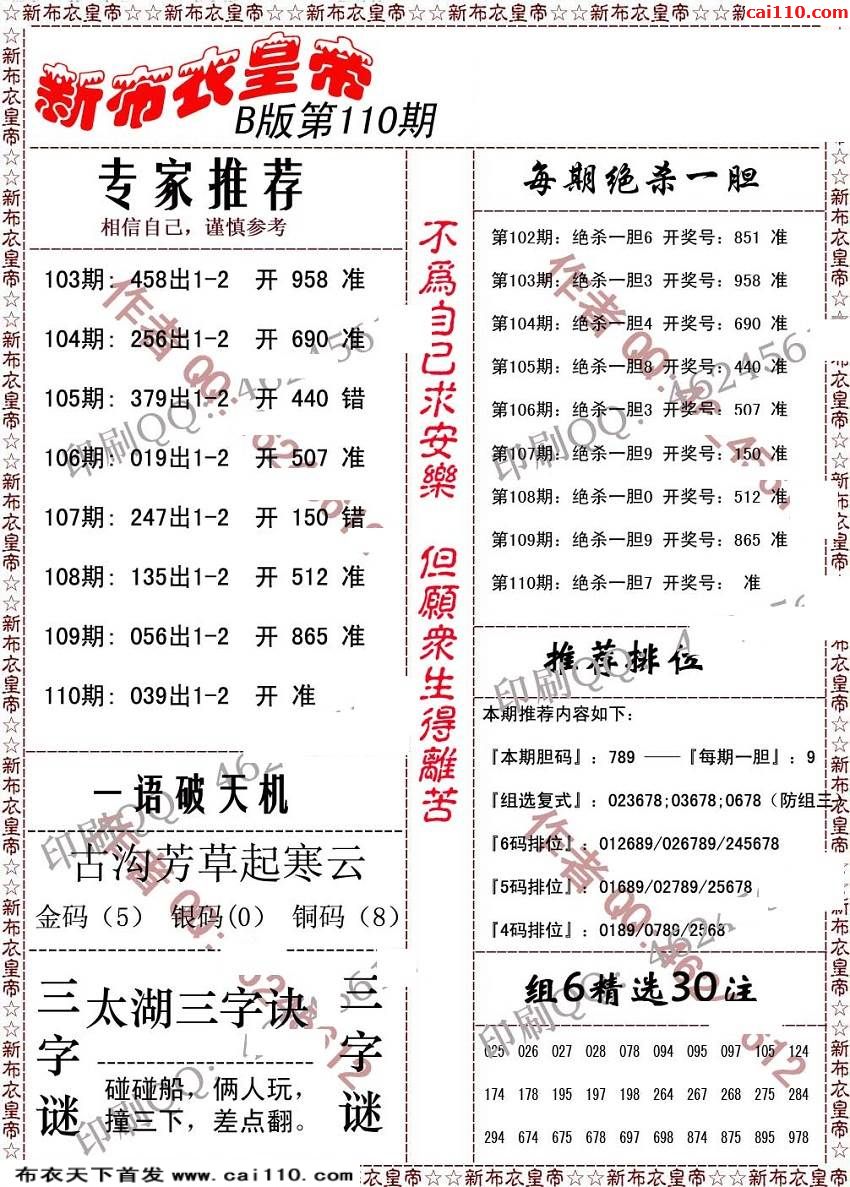 ☆新布衣皇帝☆☆新布衣皇帝☆☆新布衣皇帝☆☆新布衣皇帝☆☆新布衣皇帝☆☆新
cai110.com
新布衣皇帝
B版第110期
专家推荐
相信自己，谨慎参考
103期: 458出1-2 开 958 准
104期: 256出1-2 开 690 准
105期: 379出1-2 开 440 错
106期: 019出1-2 开 507 准
107期: 247出1-2 开 150 错
108期: 135出1-2 开 512 准
109期: 056出1-2 开 865 准
110期: 039出1-2 开 准
一语破天机
古沟芳草起寒云
金码（5） 银码(0) 铜码（8）
三字谜
太湖三字诀
碰碰船，俩人玩，
撞三下，差点翻。
三字谜
不為自己求安樂 但願衆生得離苦
每期绝杀一胆
第102期: 绝杀一胆6 开奖号: 851 准
第103期: 绝杀一胆3 开奖号: 958 准
第104期: 绝杀一胆4 开奖号: 690 准
第105期: 绝杀一胆8 开奖号: 440 准
第106期: 绝杀一胆3 开奖号: 507 准
第107期: 绝杀一胆9 开奖号: 150 准
第108期: 绝杀一胆0 开奖号: 512 准
第109期: 绝杀一胆9 开奖号: 865 准
第110期: 绝杀一胆7 开奖号: 准
推荐排位
本期推荐内容如下:
『本期胆码』: 789 ——『每期一胆』: 9
『组选复式』: 023678;03678;0678（防组三）
『6码排位』: 012689/026789/245678
『5码排位』: 01689/02789/25678
『4码排位』: 0189/0789/2568
组6精选30注
025 026 027 028 078 094 095 097 105 124
174 178 195 197 198 264 267 268 275 284
294 675 678 697 698 874 875 895 978
布衣天下首发 www.cai110.com
☆新布衣皇帝☆☆新布衣皇帝☆☆新布衣皇帝☆☆新布衣皇帝☆